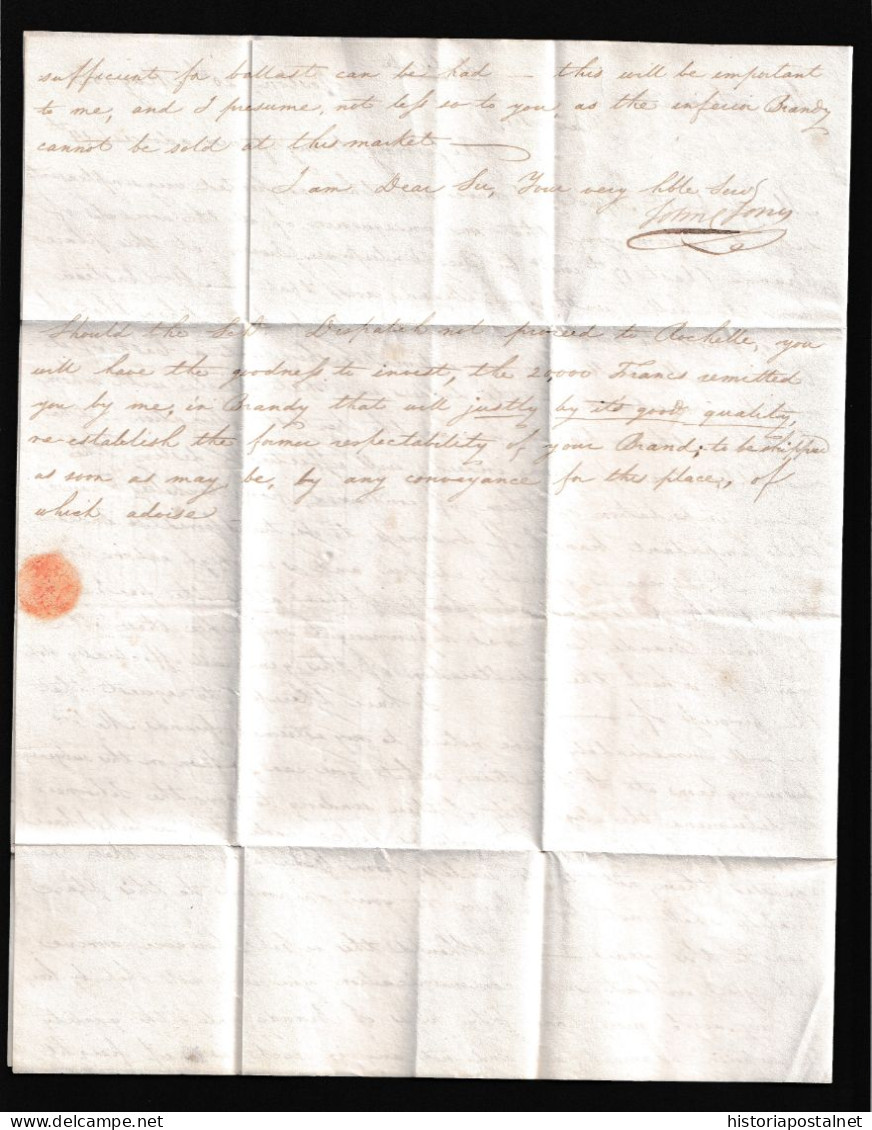 sufficient for ballast can be had — this will be important
to me, and I presume, not less so to you, as the inferior Brandy
cannot be sold at this market —
I am Dear Sir, Your very hble Servt
John
Should the Sch Dispatch not proceed to Rochelle, you
will have the goodness to invest, the 20,000 Francs remitted
you by me, in Brandy that will justly by its good quality,
re-establish the former respectability of your Brand; to be shipped
as soon as may be, by any conveyance for this place, of
which advise
historiapostalnet